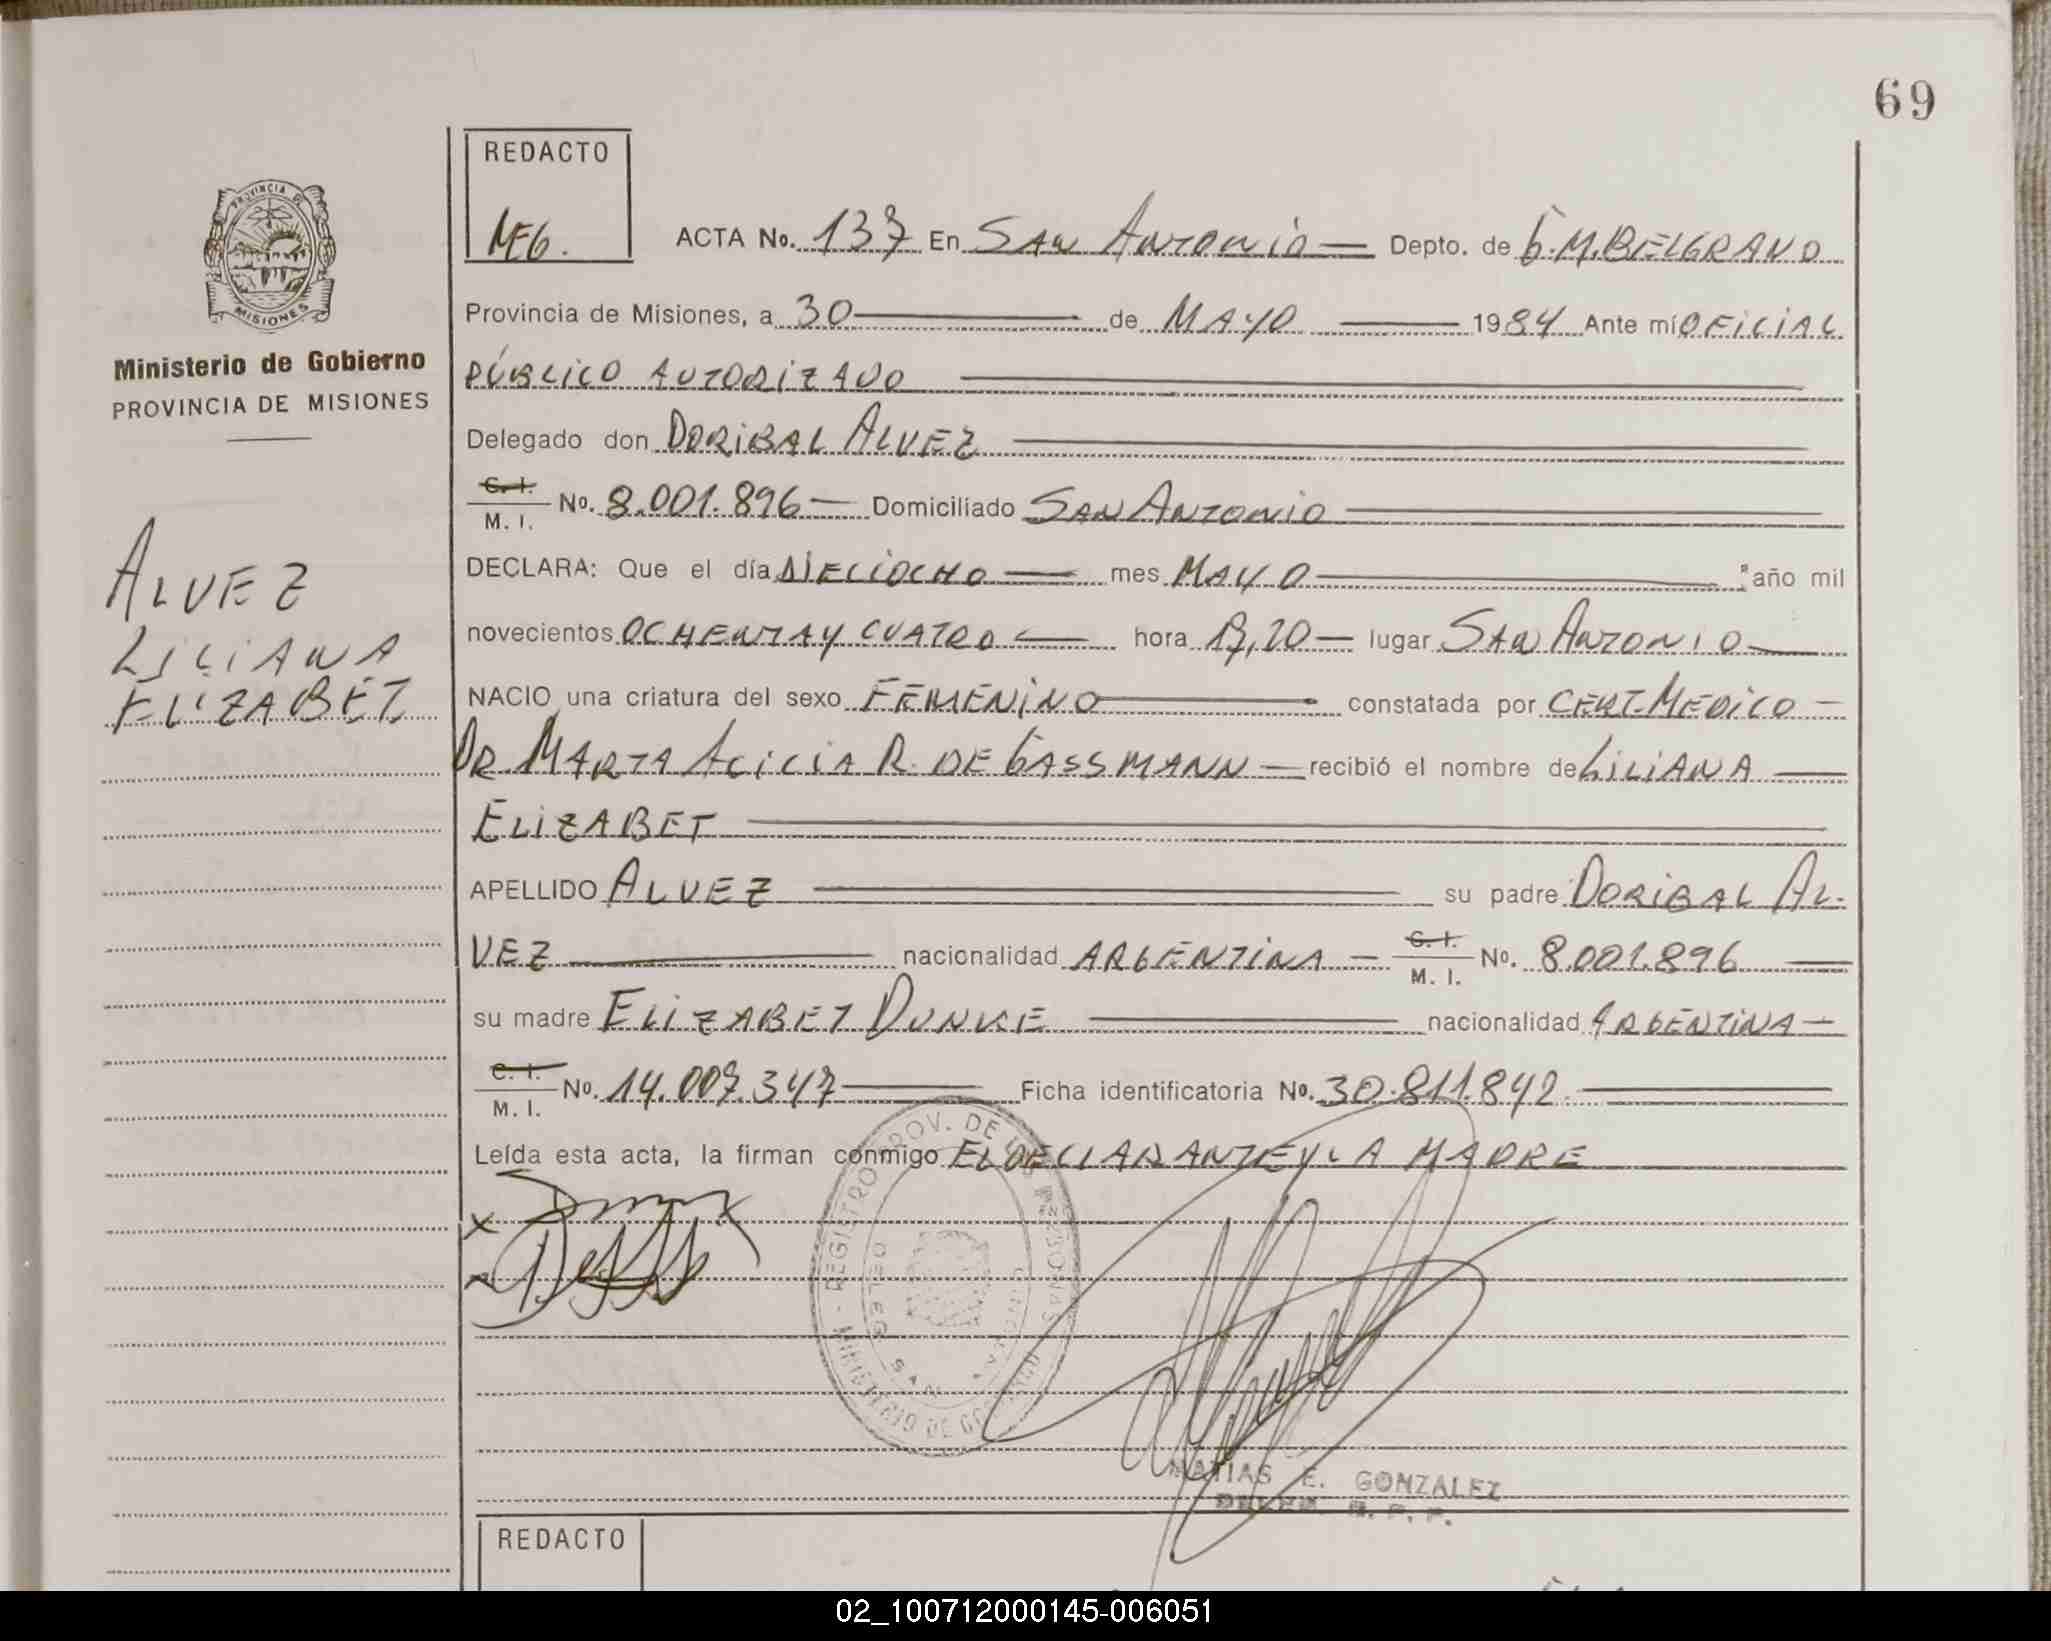 69
REDACTO
MEG.
ACTA No. 137 En SAN ANTONIO — Depto. de G. M. BELGRANO
PROVINCIA DE
MISIONES
Provincia de Misiones, a 30 — de MAYO — 1984 Ante mí OFICIAL
Ministerio de Gobierno
PROVINCIA DE MISIONES
PÚBLICO AUTORIZADO —
Delegado don DORIBAL ALVEZ —
C. I.
M. I. No. 8.001.896 — Domiciliado SAN ANTONIO —
ALVEZ
LILIANA
ELIZABET
DECLARA: Que el día DIECIOCHO — mes MAYO — año mil
novecientos OCHENTA Y CUATRO — hora 17,20 — lugar SAN ANTONIO —
NACIO una criatura del sexo FEMENINO — constatada por CERT. MEDICO —
DR MARTA ALICIA R. DE GASSMANN — recibió el nombre de LILIANA —
ELIZABET —
APELLIDO ALVEZ — su padre DORIBAL AL-
VEZ — nacionalidad ARGENTINA — C. I. M. I. No. 8.001.896 —
su madre ELIZABET DUNKE — nacionalidad ARGENTINA —
C. I.
M. I. No. 14.007.347 — Ficha identificatoria No. 30.811.842. —
Leída esta acta, la firman conmigo EL DECLARANTE Y LA MADRE
REGISTRO PROV. DE LAS PERSONAS
MINISTERIO DE
MATIAS E. GONZALEZ
REDACTO
02_100712000145-006051